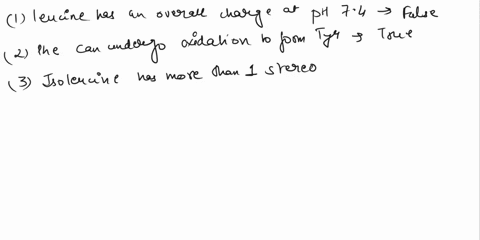 (1) leucine has an overall charge at pH 7.4 → False
(2) Phe can undergo oxidation to form Tyr → True
(3) Isoleucine has more than 1 stereo